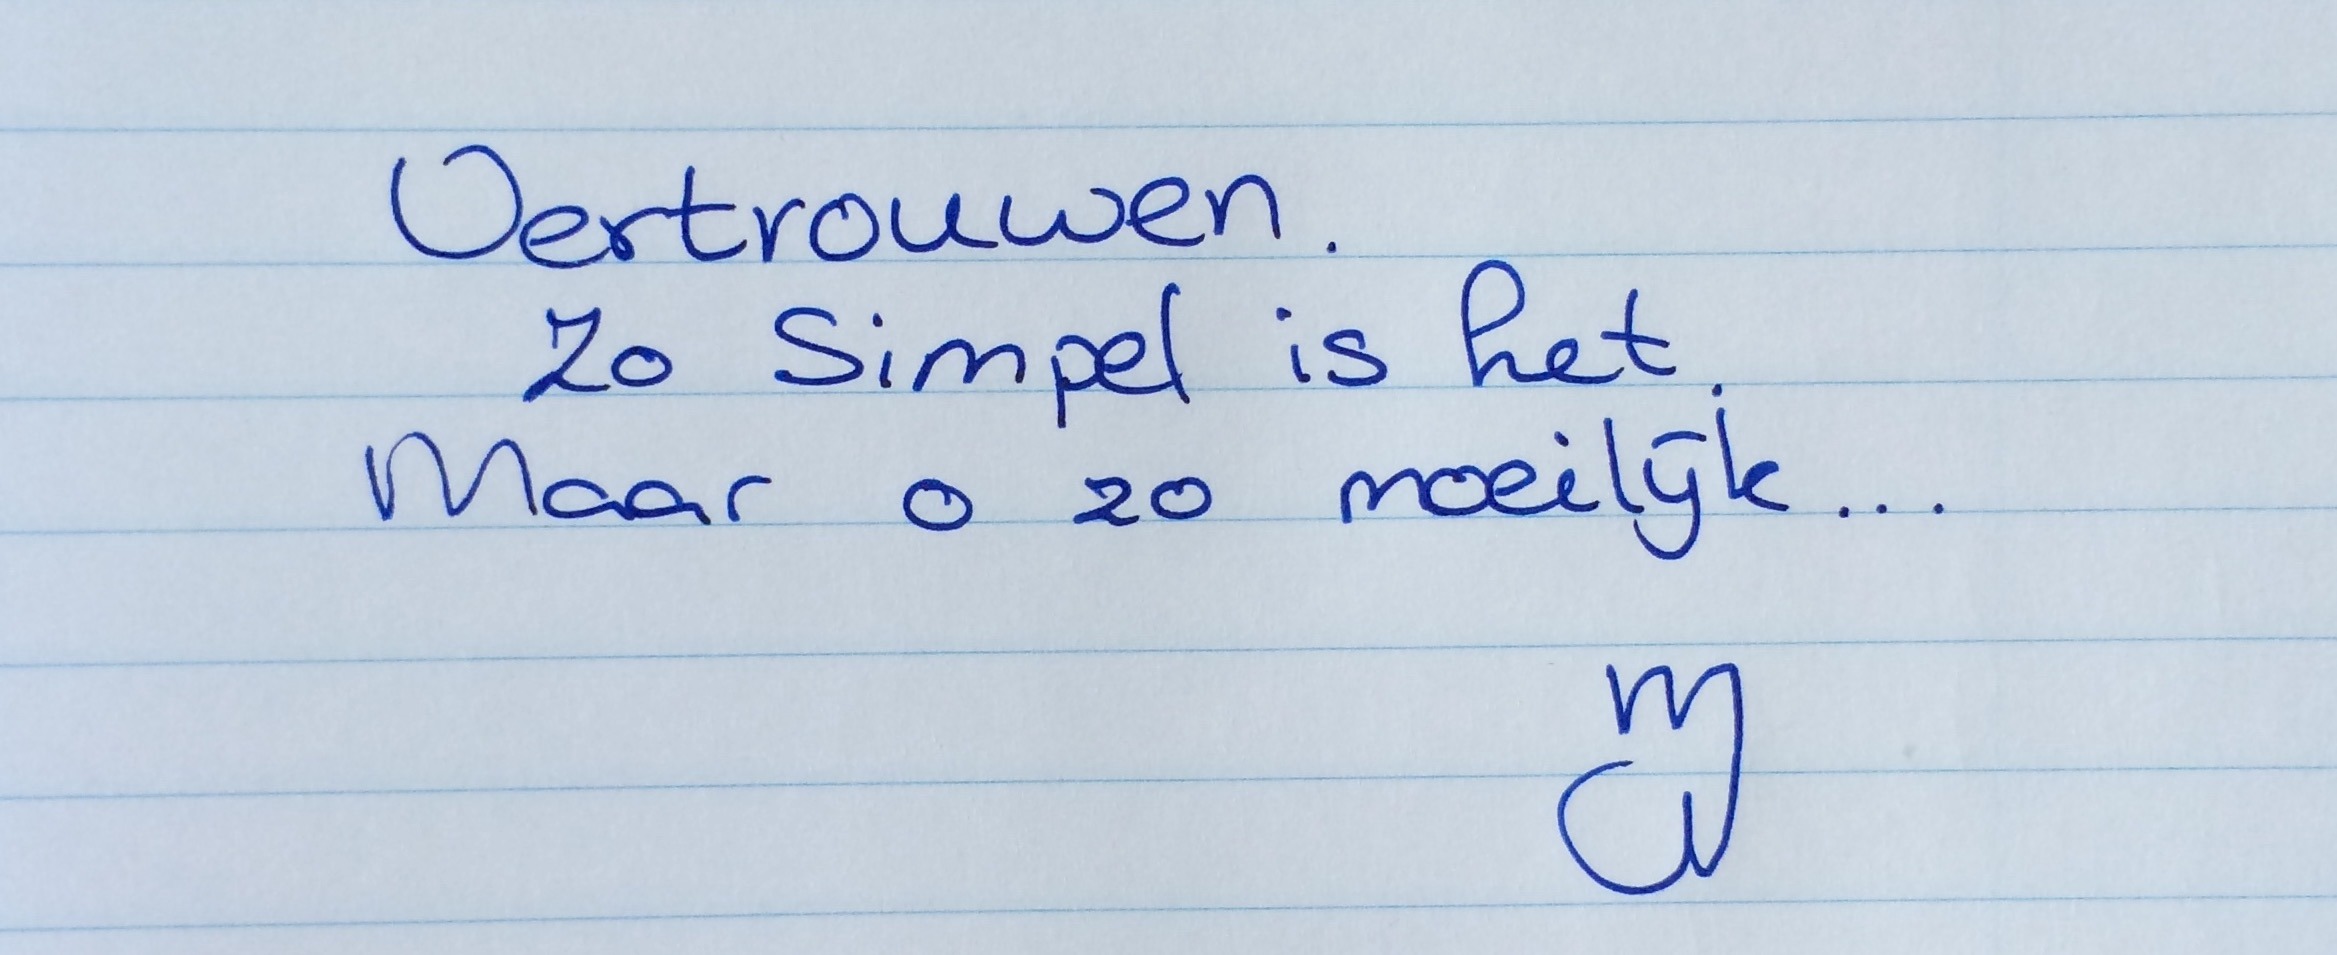 Vertrouwen.
Zo simpel is het.
Maar o zo moeilijk...